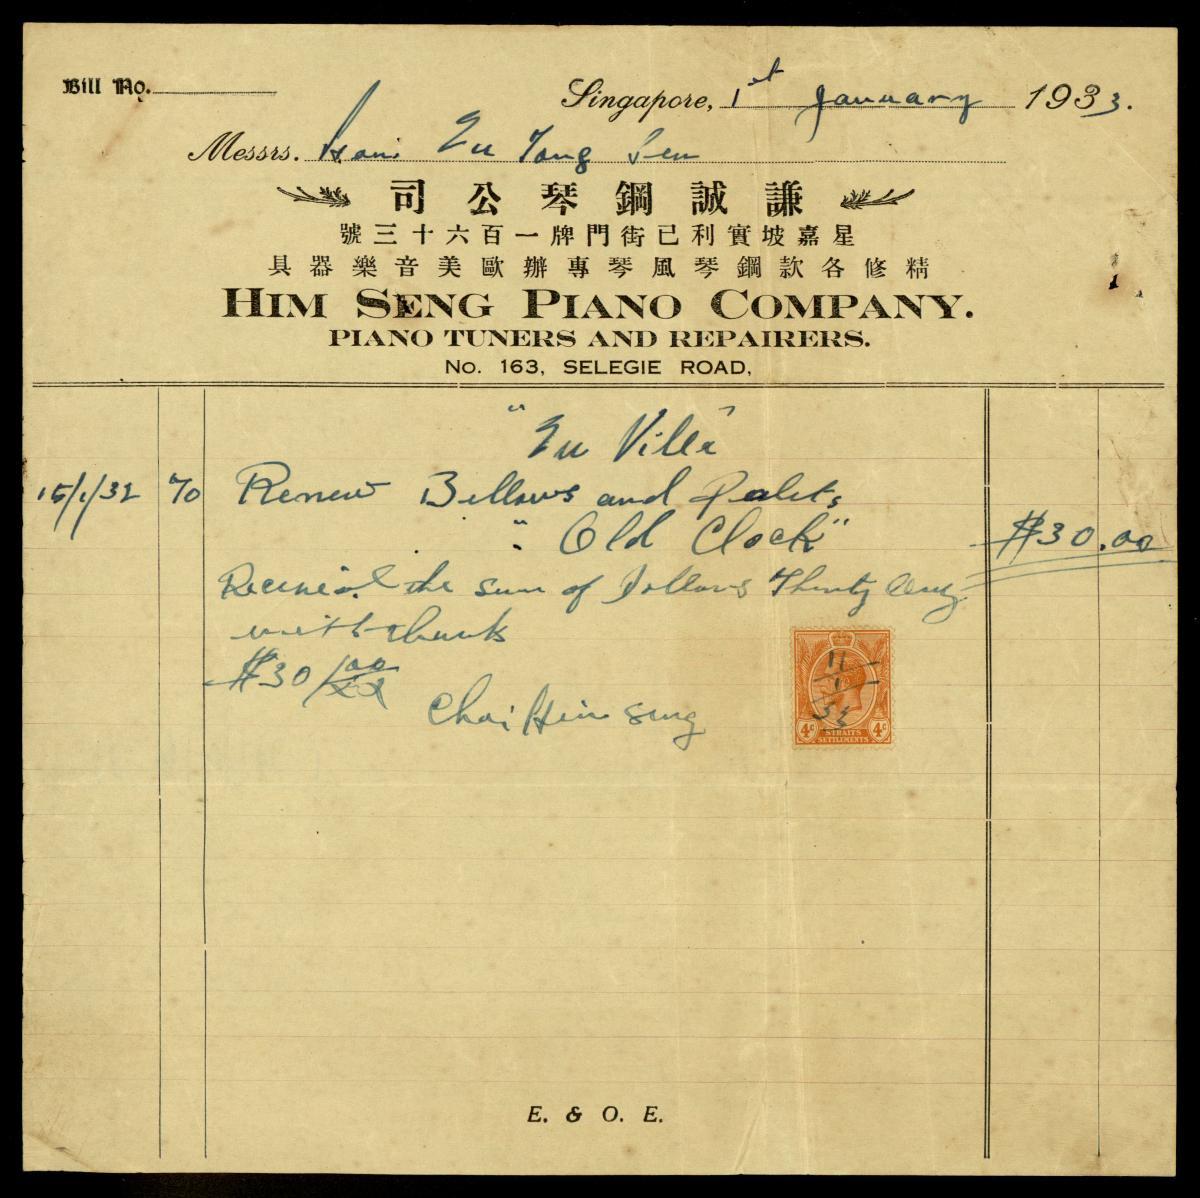 Bill No.
Singapore, 1st January 1933.
Messrs. Eu Tong Sen
謙誠鋼琴公司
星嘉坡實利已街門牌一百六十三號
精修各款鋼琴風琴專辦歐美音樂器具
HIM SENG PIANO COMPANY.
PIANO TUNERS AND REPAIRERS.
No. 163, SELEGIE ROAD,
"Eu Villa"
15/1/32 To Renew Bellows and Palets
"Old Clock" $30.00
Received the sum of Dollars Thirty Only
with thanks
$30/00
Chai Him Seng
11
1
33
4c STRAITS SETTLEMENTS 4c
E. & O. E.